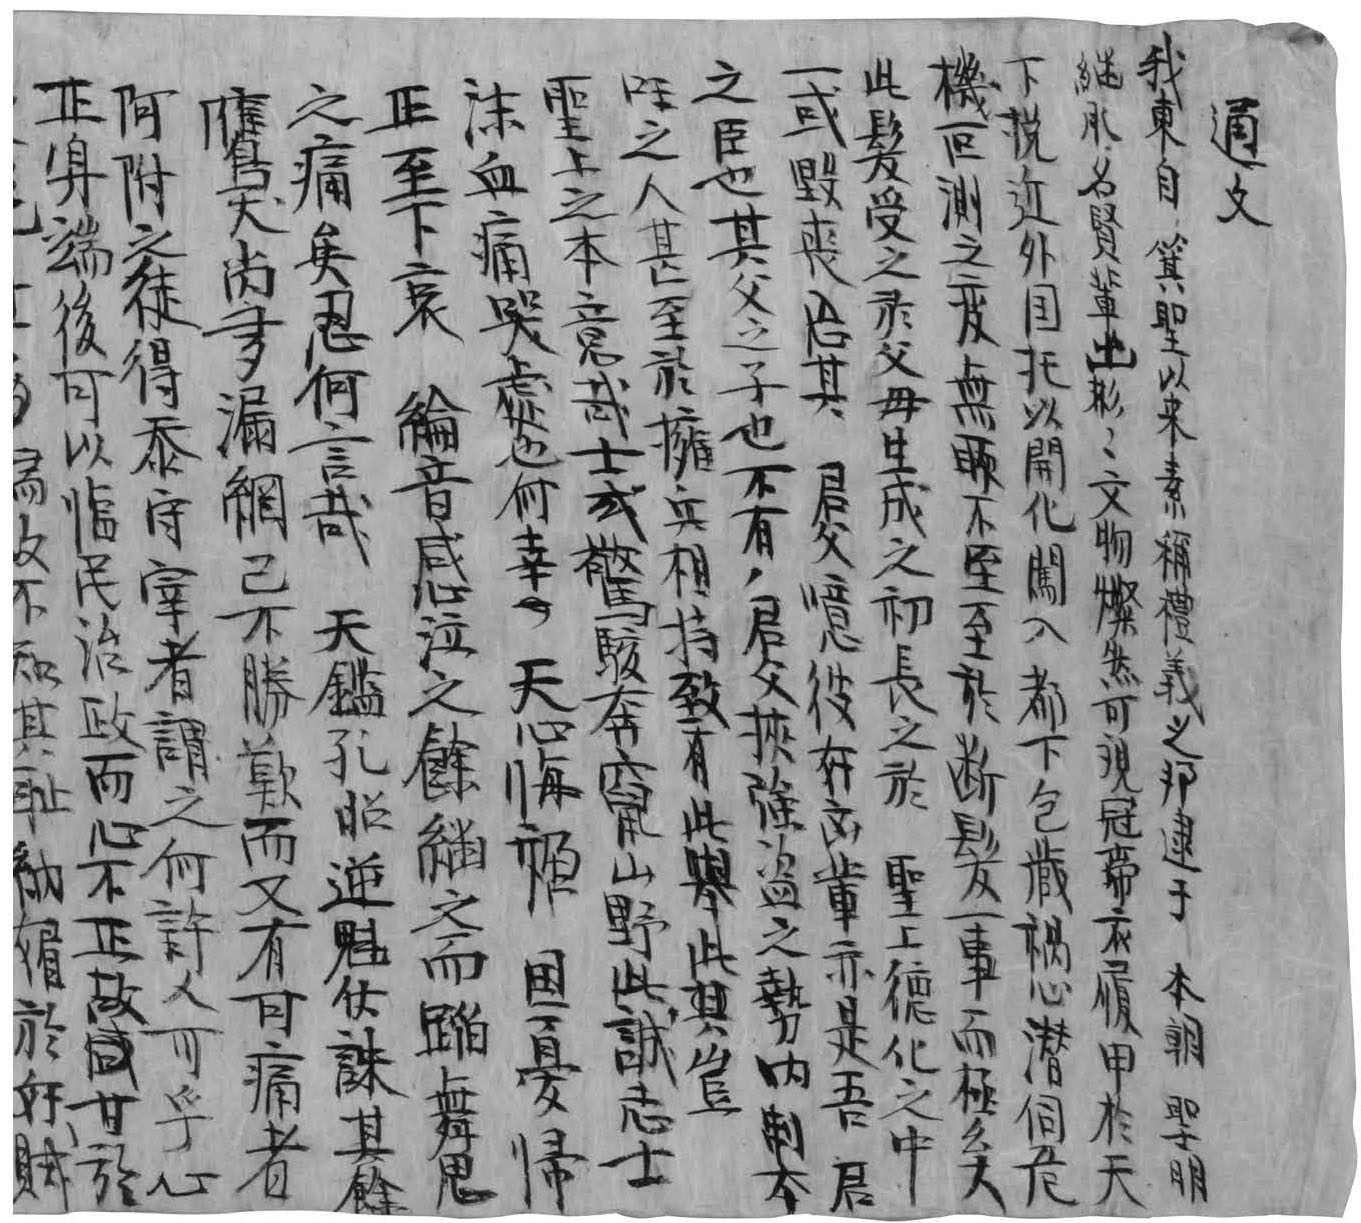 通文
我東自 箕聖以来素稱禮義之邦逮于 本朝 聖明
継承名賢輩出彬々文物燦然可観冠帶衣履甲於天
下挽近外国托以開化闖入都下包藏禍心潜伺危
機叵測之変無所不至至於断髮一事而極矣夫
此髮受之於父母生成之初長之於 聖上德化之中
一或毀喪忘其 君父噫彼奸凶輩亦是吾君
之臣也其父之子也不有君父挾強盜之勢内制本
之人甚至於擁兵相持致有此擧此其豈
聖上之本意哉士或驚駭奔竄山野此誠志士
沫血痛哭處也何幸 天心悔禍 国憂帰
正至下哀 綸音感泣之餘繼之而蹈舞思
之痛矣忍何言哉 天鑑孔昭逆魁伏誅其餘
鷹犬尚多漏網已不勝歎而又有可痛者
阿附之徒得添守宰者謂之何許人可乎心
正身端後可以臨民治政而心不正故國甘於
不知其恥 於奸賊